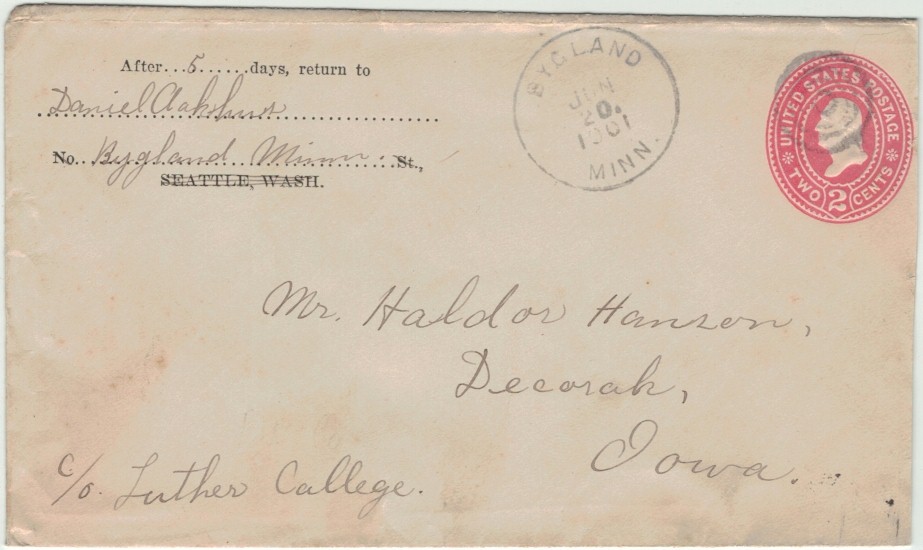 After...5......days, return to
Daniel
No. Bygland Minn. St.,
SEATTLE, WASH.
BYGLAND
JUN
20.
1901
MINN.
UNITED STATES POSTAGE
TWO 2 CENTS
Mr. Haldor Hanson,
Decorah,
Iowa.
c/o. Luther Callege.